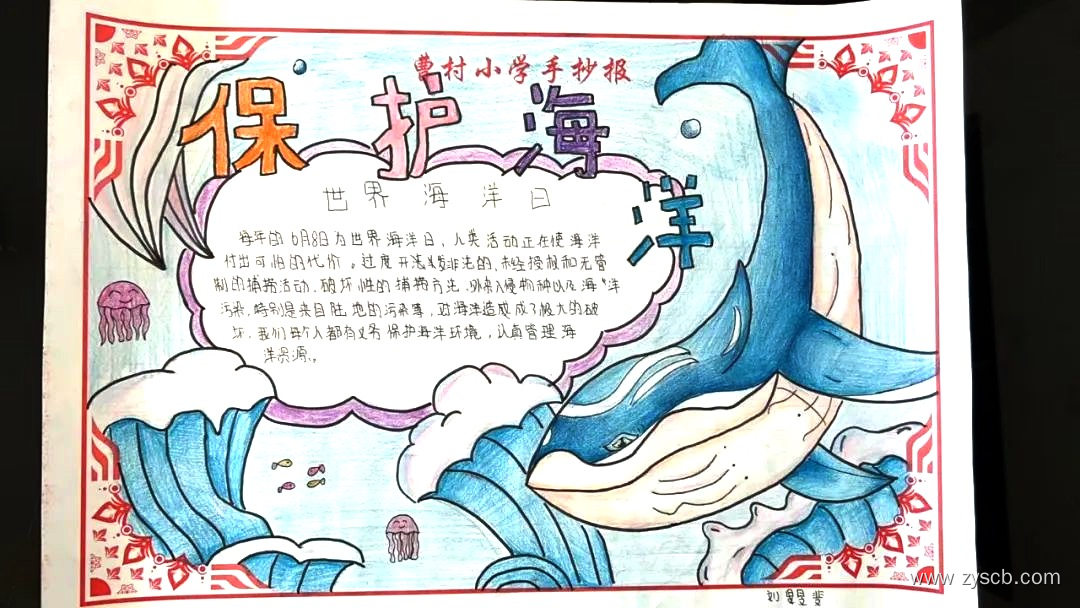 曹村小学手抄报
保护海洋
世界海洋日
每年的6月8日为世界海洋日,人类活动正在使海洋
付出可怕的代价。过度开法或非法的、未经授权和无管
制的捕捞活动,破坏性的捕捞方法,外来入侵物种以及海洋
污染,特别是来自陆地的污染等,对海洋造成成了极大的破
坏,我们每个人都有义务保护海洋环境,认真管理海
洋资源。
www.zyscb.com
刘昱斐